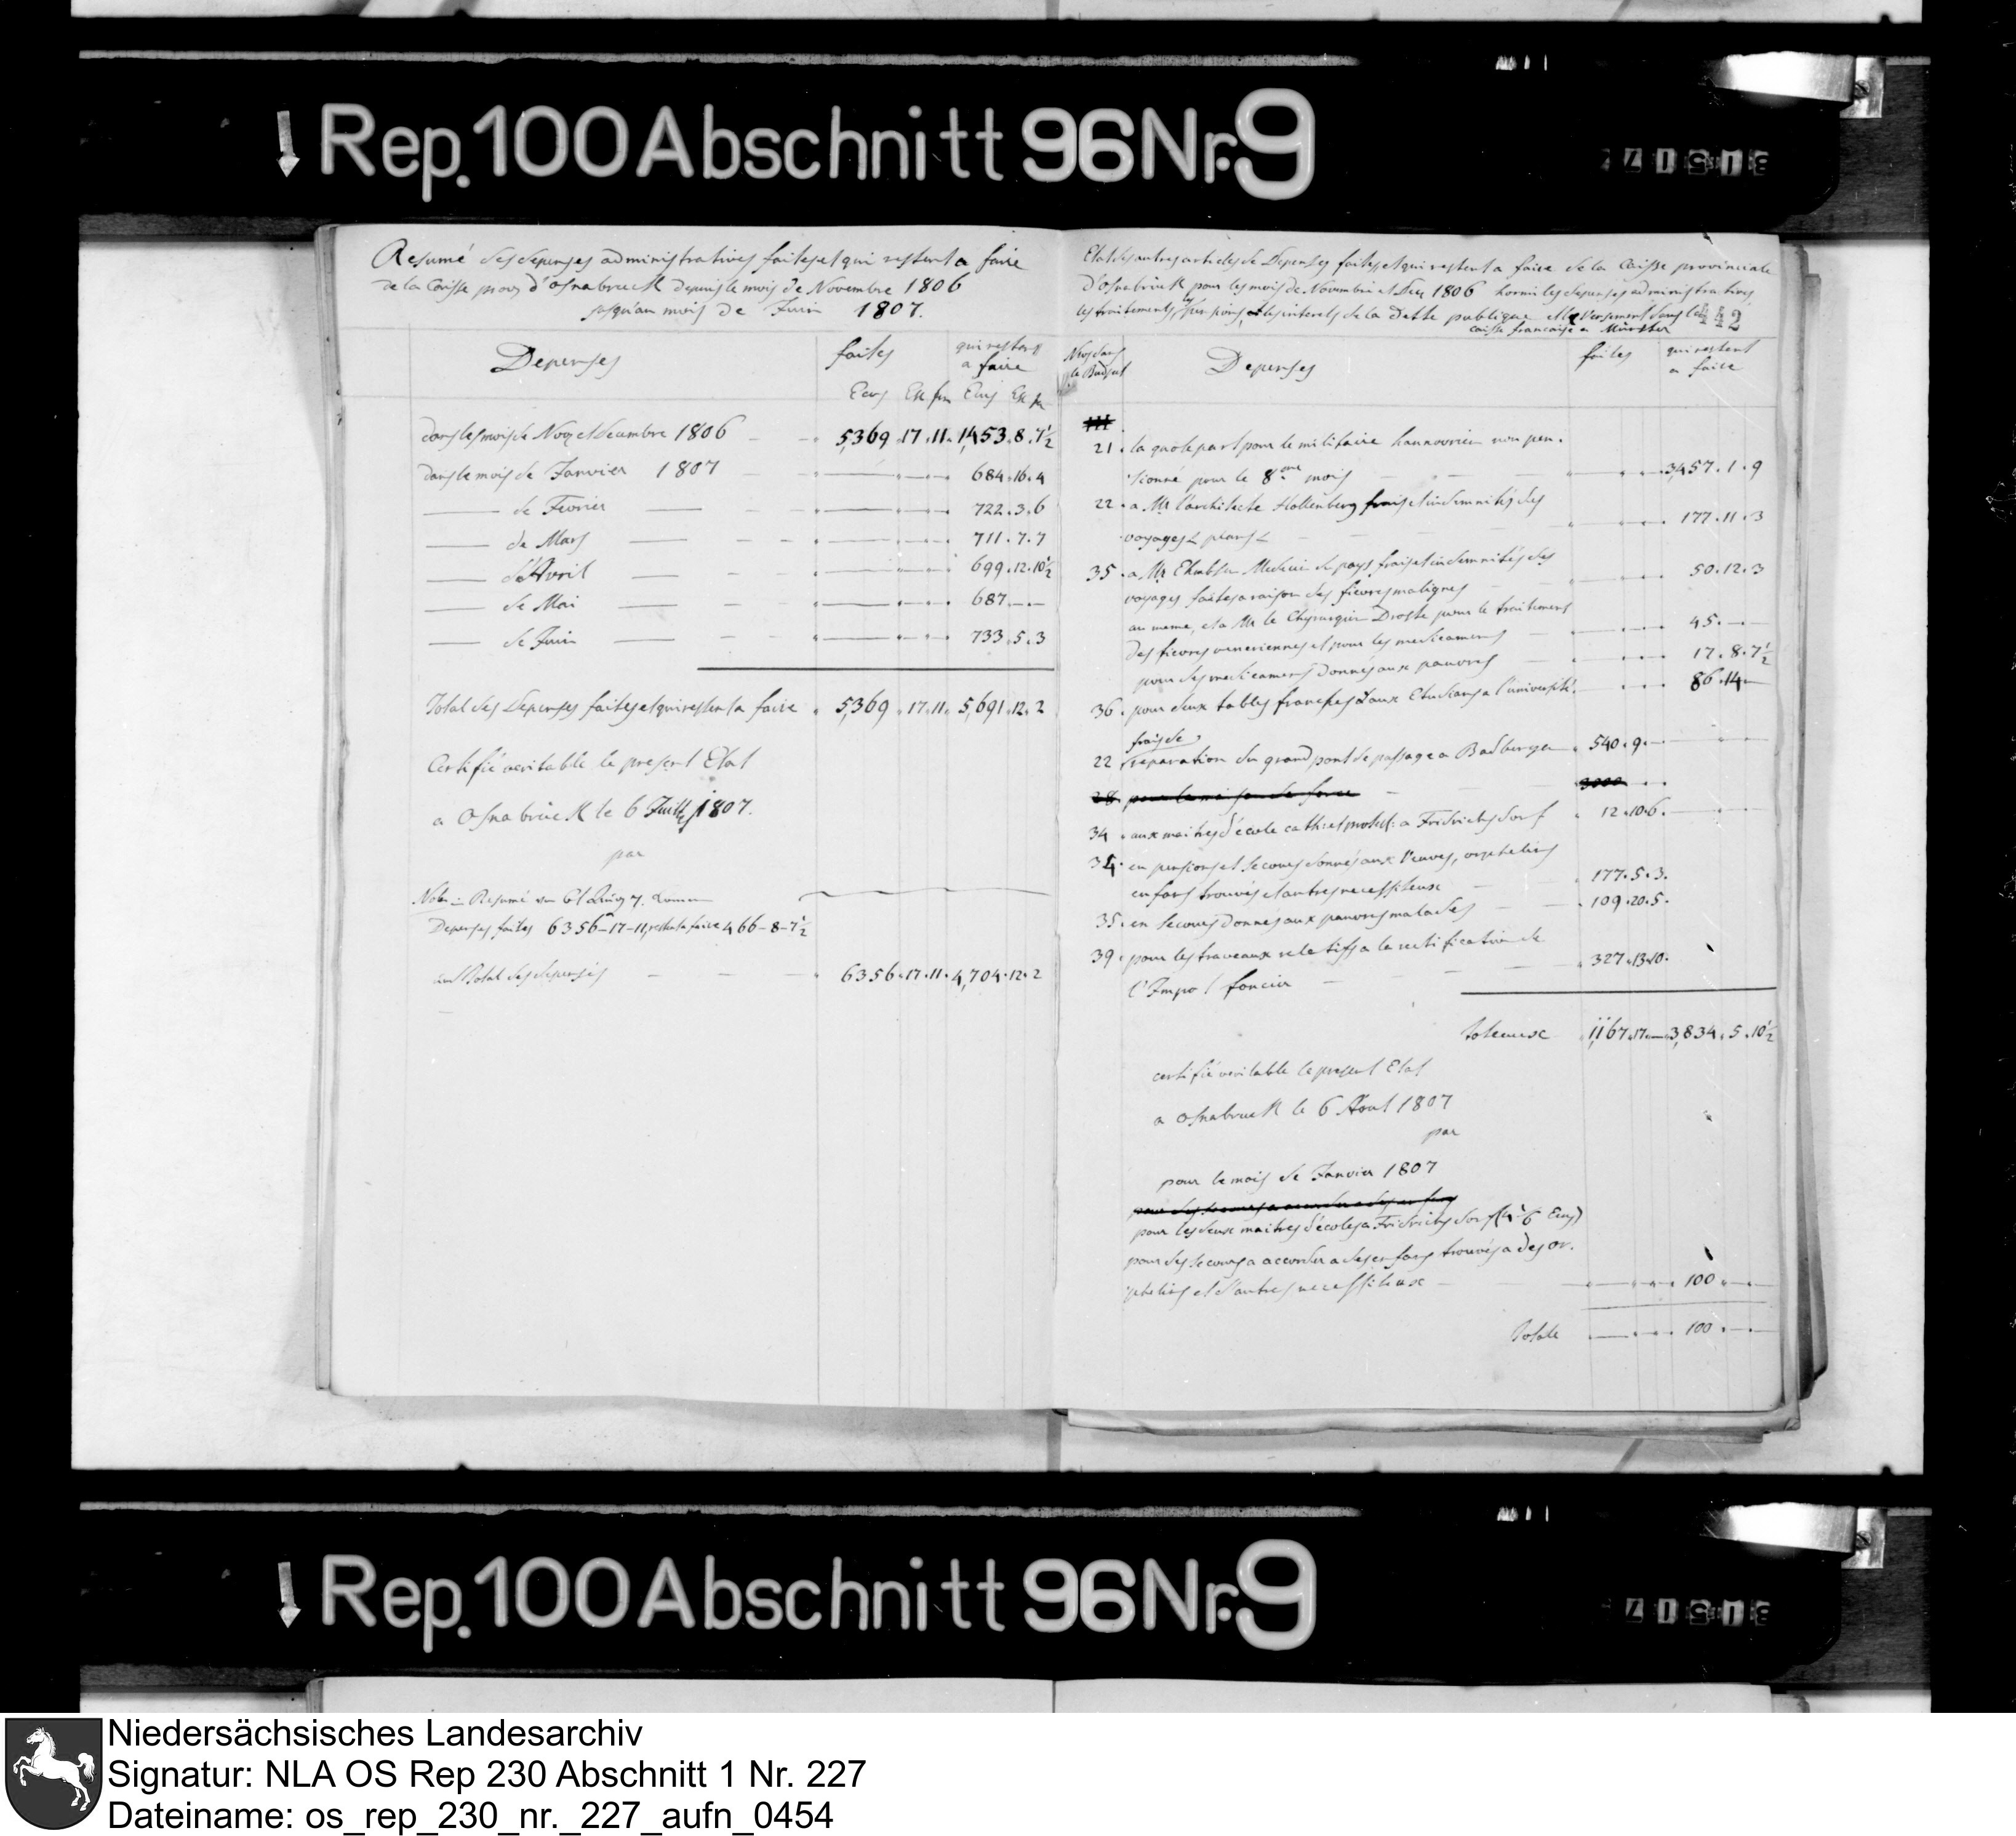 Rep. 100 Abschnitt 96 Nr. 9
Resumé des depenses administratives faites et qui restent a faire
de la Caisse prov. d'Osnabruck depuis le mois de Novembre 1806
jusqu'au mois de Juin 1807.
Depenses faites qui restent a faire
Ecus Ecus
dans les mois de Nov et decembre 1806 5,369.17.11. 1,453.8.7½
dans le mois de Janvier 1807 684.16.4
de Fevrier 722.3.6
de Mars 711.7.7
d'Avril 699.12.10½
de Mai 687.—.—
de Juin 733.5.3
Total des Depenses faites et qui restent a faire 5,369.17.11. 5,691.12.2
Certifié veritable le present Etat
a Osnabruck le 6 1807.
par
Resumé
Depenses faites 6356-17-11, restent a faire 466-8-7½
Total des depenses 6356.17.11. 4,704.12.2
Etat des autres articles de Depenses faites et qui restent a faire de la Caisse provinciale
d'Osnabruck pour les mois de Novembre et Dec 1806 hormis les depenses administratives,
les traitements, les pensions, les interets de la Dette publique et le Versement dans la
caisse francaise a Münster
442
Nros dans le Budget
Depenses faites qui restent a faire
21. la quote part pour le militaire hannovrien non pen-
sionné pour le 8me mois 3,457.1.9
22. a Mr l'architecte Hollenberg frais et indemnités des
voyages & plans & 177.11.3
35. a Mr Medecin de pays frais et indemnités des
voyages faites a raison des fievres malignes 50.12.3
au meme, et a Mr le Chyrurgien Droste pour le traitement
des fievres veneriennes et pour les medicamens 45.—.
pour des medicamens donnés aux pauvres 17.8.7½
36. pour deux tables franches aux Etudians a l'université. 86.14.—
frais de
22 reparation du grand pont de passage a Badbergen 540.9.—
28. pour la maison de force 3000
34. aux maitres d'école cath: et protest: a Fridrichsdorf 12.10.6.
34. en pensions et secours donnés aux Veuves, orphelins
enfans trouvés et autres necessiteux 177.5.3.
35. en Secours donnés aux pauvres malades 109.20.5.
39. pour les traveaux relatifs a la rectification de
l'Impot foncier 327.13.10.
totaux 1,167.17.— 3,834.5.10½
certifié veritable le present Etat
a Osnabruck le 6 Aout 1807
par
pour le mois de Janvier 1807
pour les deux maitres d'écoles a Fridrichsdorf (a 6 Ecus)
pour des secours a accorder a des enfans trouvés a des or-
phelins et d'autres necessiteux 100.—.
totale 100.—.
Rep. 100 Abschnitt 96 Nr. 9
Niedersächsisches Landesarchiv
Signatur: NLA OS Rep 230 Abschnitt 1 Nr. 227
Dateiname: os_rep_230_nr._227_aufn_0454